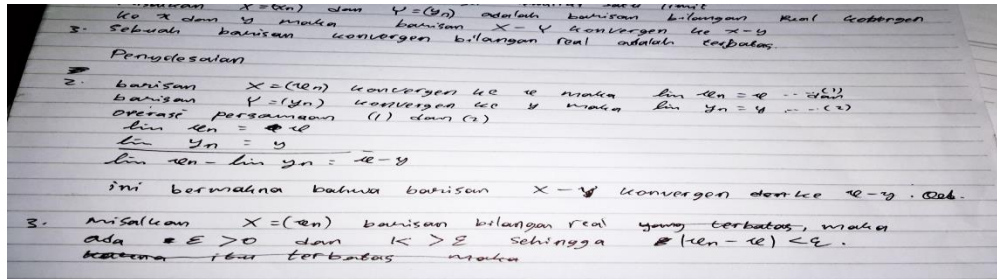 Misalkan X = (xn) dan Y = (yn) adalah barisan bilangan real konvergen
ke x dan y maka barisan X - Y konvergen ke x-y
3. Sebuah barisan konvergen bilangan real adalah terbatas.
Penyelesaian
2. barisan X = (xn) konvergen ke x maka lim xn = x ... (1)
dan
barisan Y = (yn) konvergen ke y maka lim yn = y ... (2)
operasi persamaan (1) dan (2)
lim xn = x
lim yn = y
lim xn - lim yn = x - y
ini bermakna bahwa barisan X - Y konvergen ke x - y. Qed.
3. Misalkan X = (xn) barisan bilangan real yang terbatas, maka
ada ε > 0 dan K > ε sehingga |xn - x| < ε.
karena itu terbatas maka